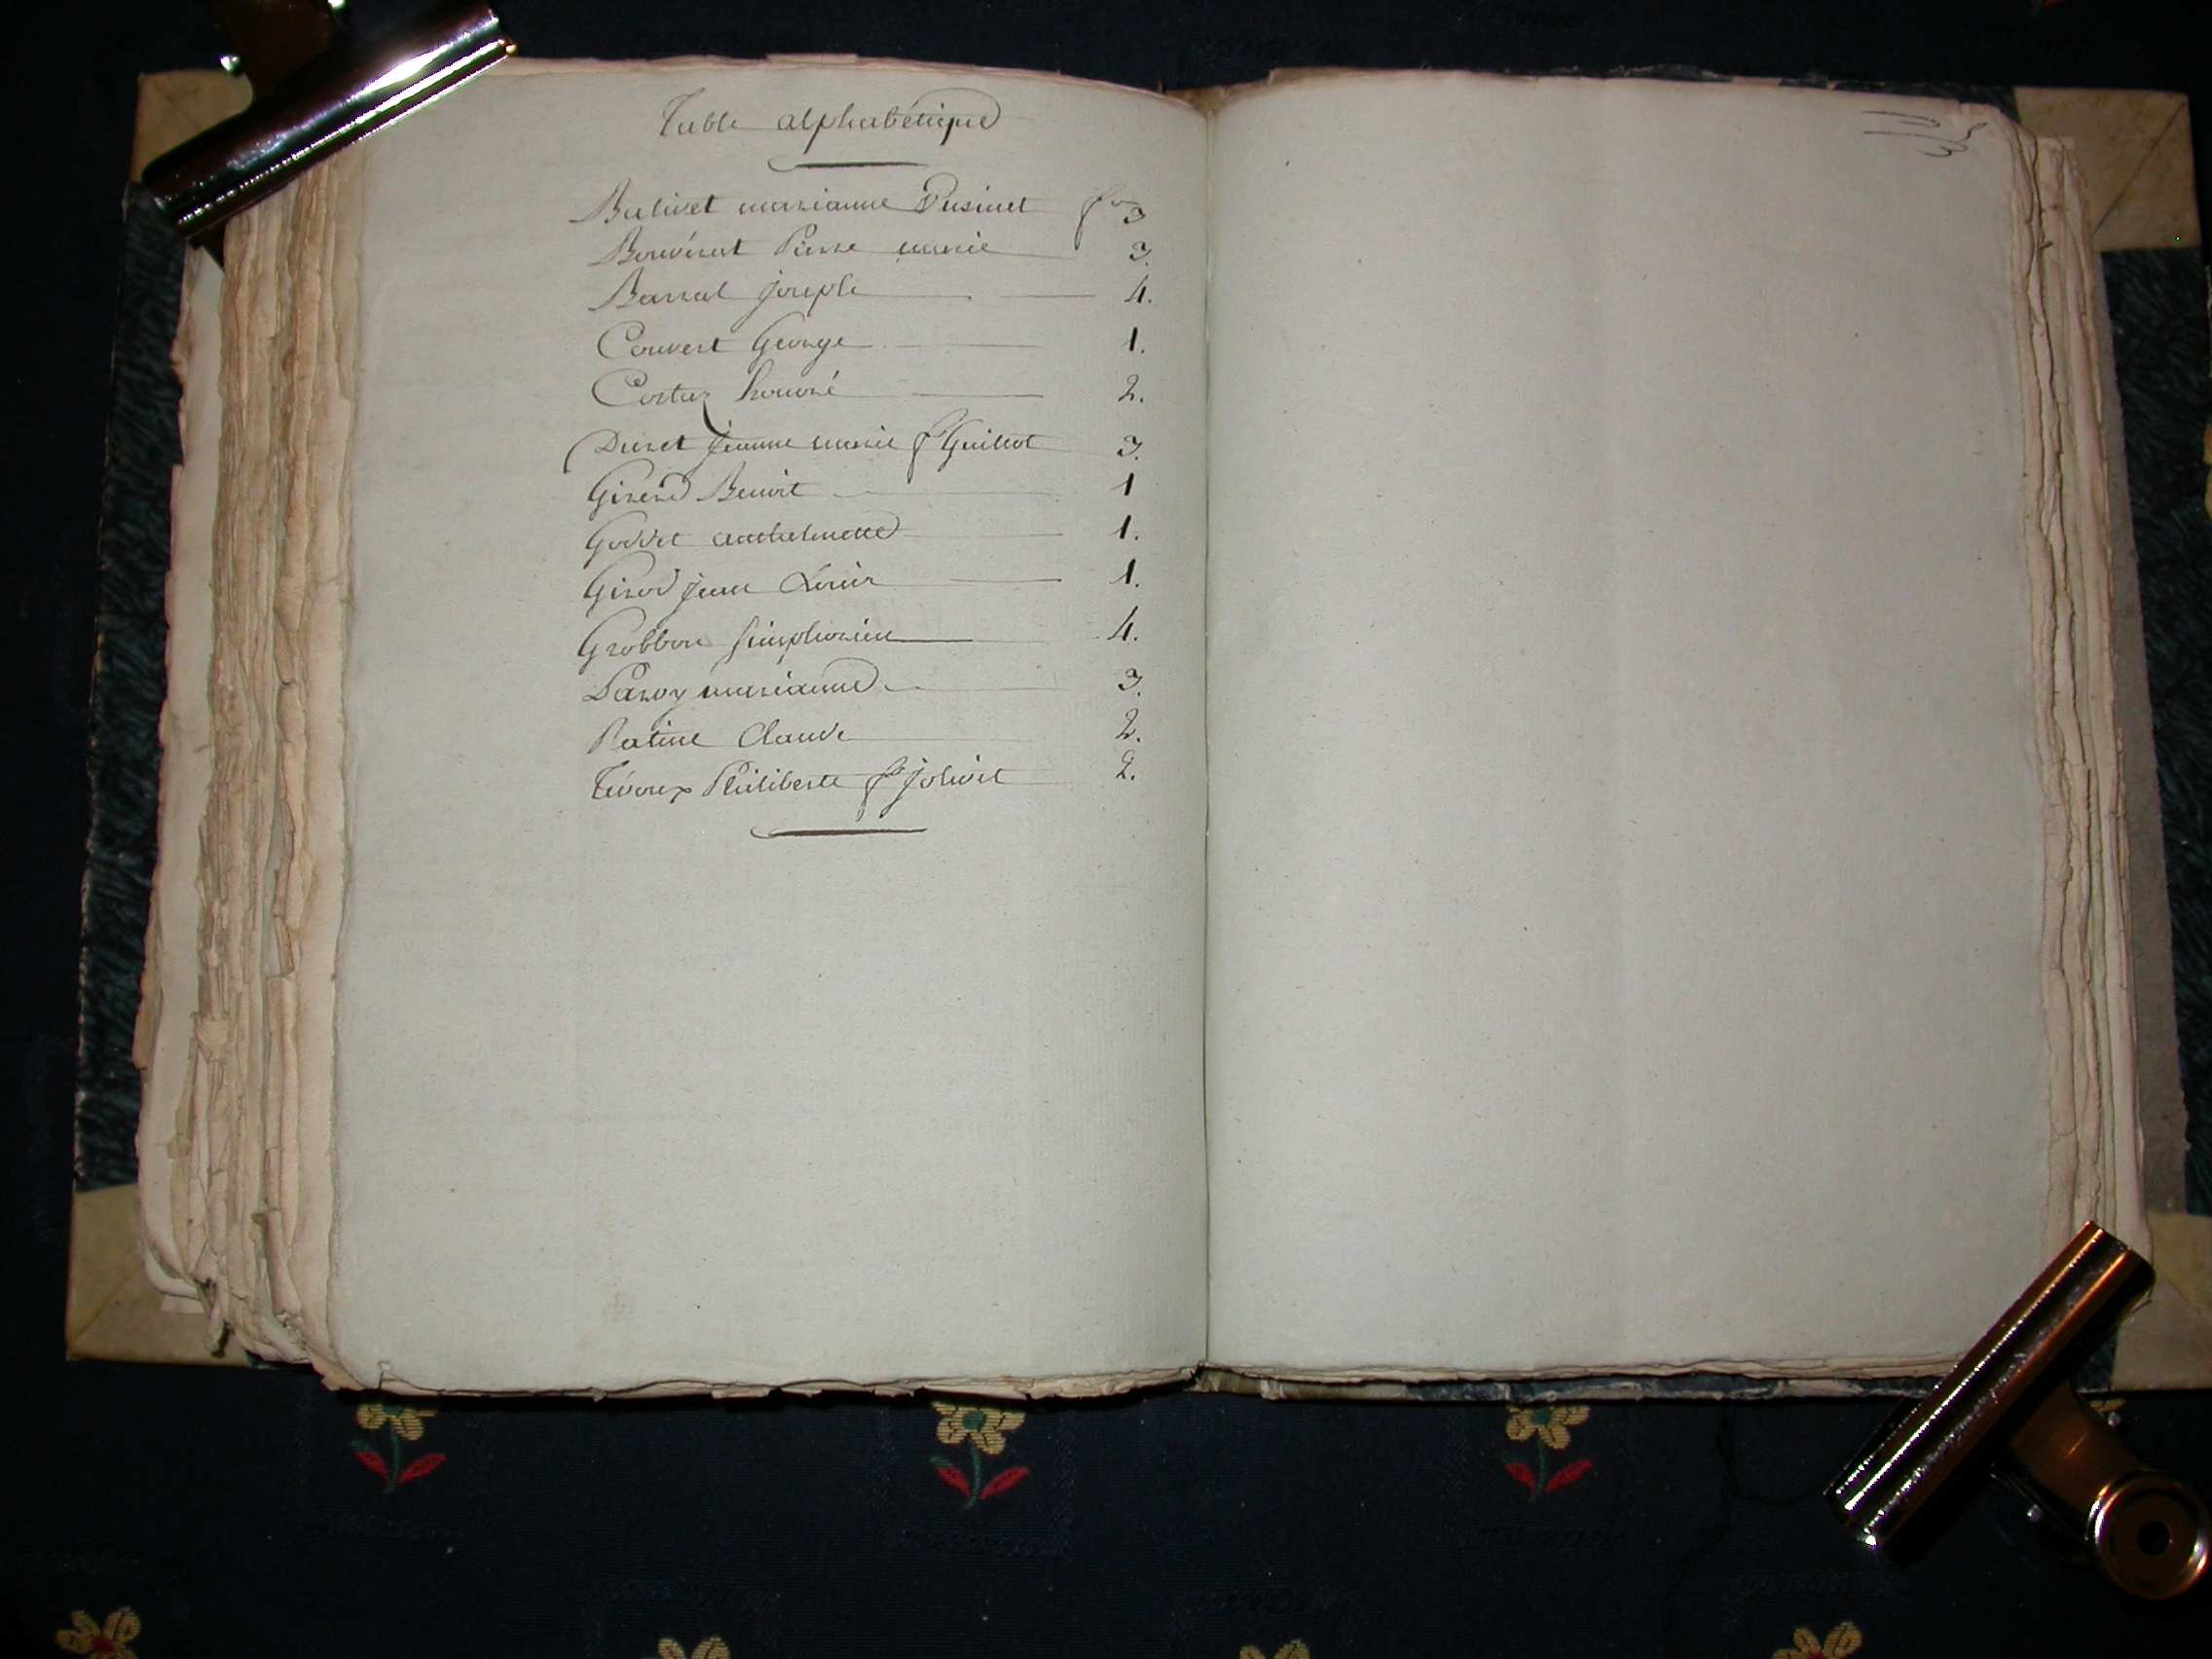 Table alphabétique
Balivet marianne Pusinet fo 3
Bouvérat Pierre marie 3.
Barral joseph 4.
Couvert George 1.
Costaz honoré 2.
Duret jeanne marie fe Guillot 3.
Girerd Benoit 1
Goddet anthelmette 1.
Girod jean Louis 1.
Grobbon simphorien 4.
Paroy marianne 3.
Ratine Claude 2.
Tévoux Philiberte fe jolivet 2.